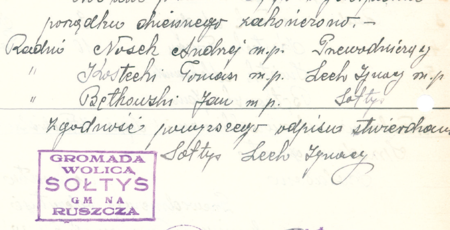 porządku dziennego zakończono.-
Radni Nosek Andrzej m.p. Przewodniczący
" Kostecki Tomasz m.p. Lech Ignacy m.p
" Bętkowski Jan m.p. Sołtys
Zgodność powyższego odpisu stwierdzam
Sołtys Lech Ignacy
GROMADA
WOLICA
SOŁTYS
GM NA
RUSZCZA